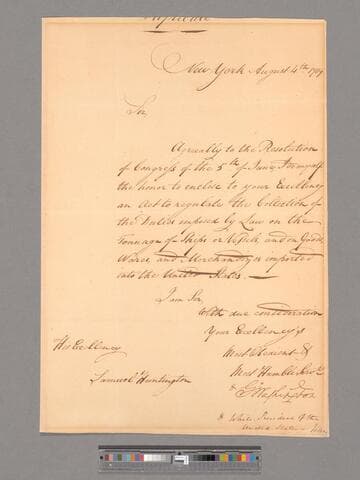 Duplicate
New York August 4th 1789
Sir,
Agreeably to the Resolution
of Congress of the 5th of June, I do myself
the honor to enclose to your Excellency
an Act to regulate the Collection of
the Duties imposed by Law on the
Tonnage of Ships or Vessels, and on Goods
Wares and Merchandizes imported
into the United States.
I am Sir,
With due consideration
Your Excellency's
Most Obedient &
Most Humble Serv
G Washington
His Excellency
Samuel Huntington
While President of the
United States